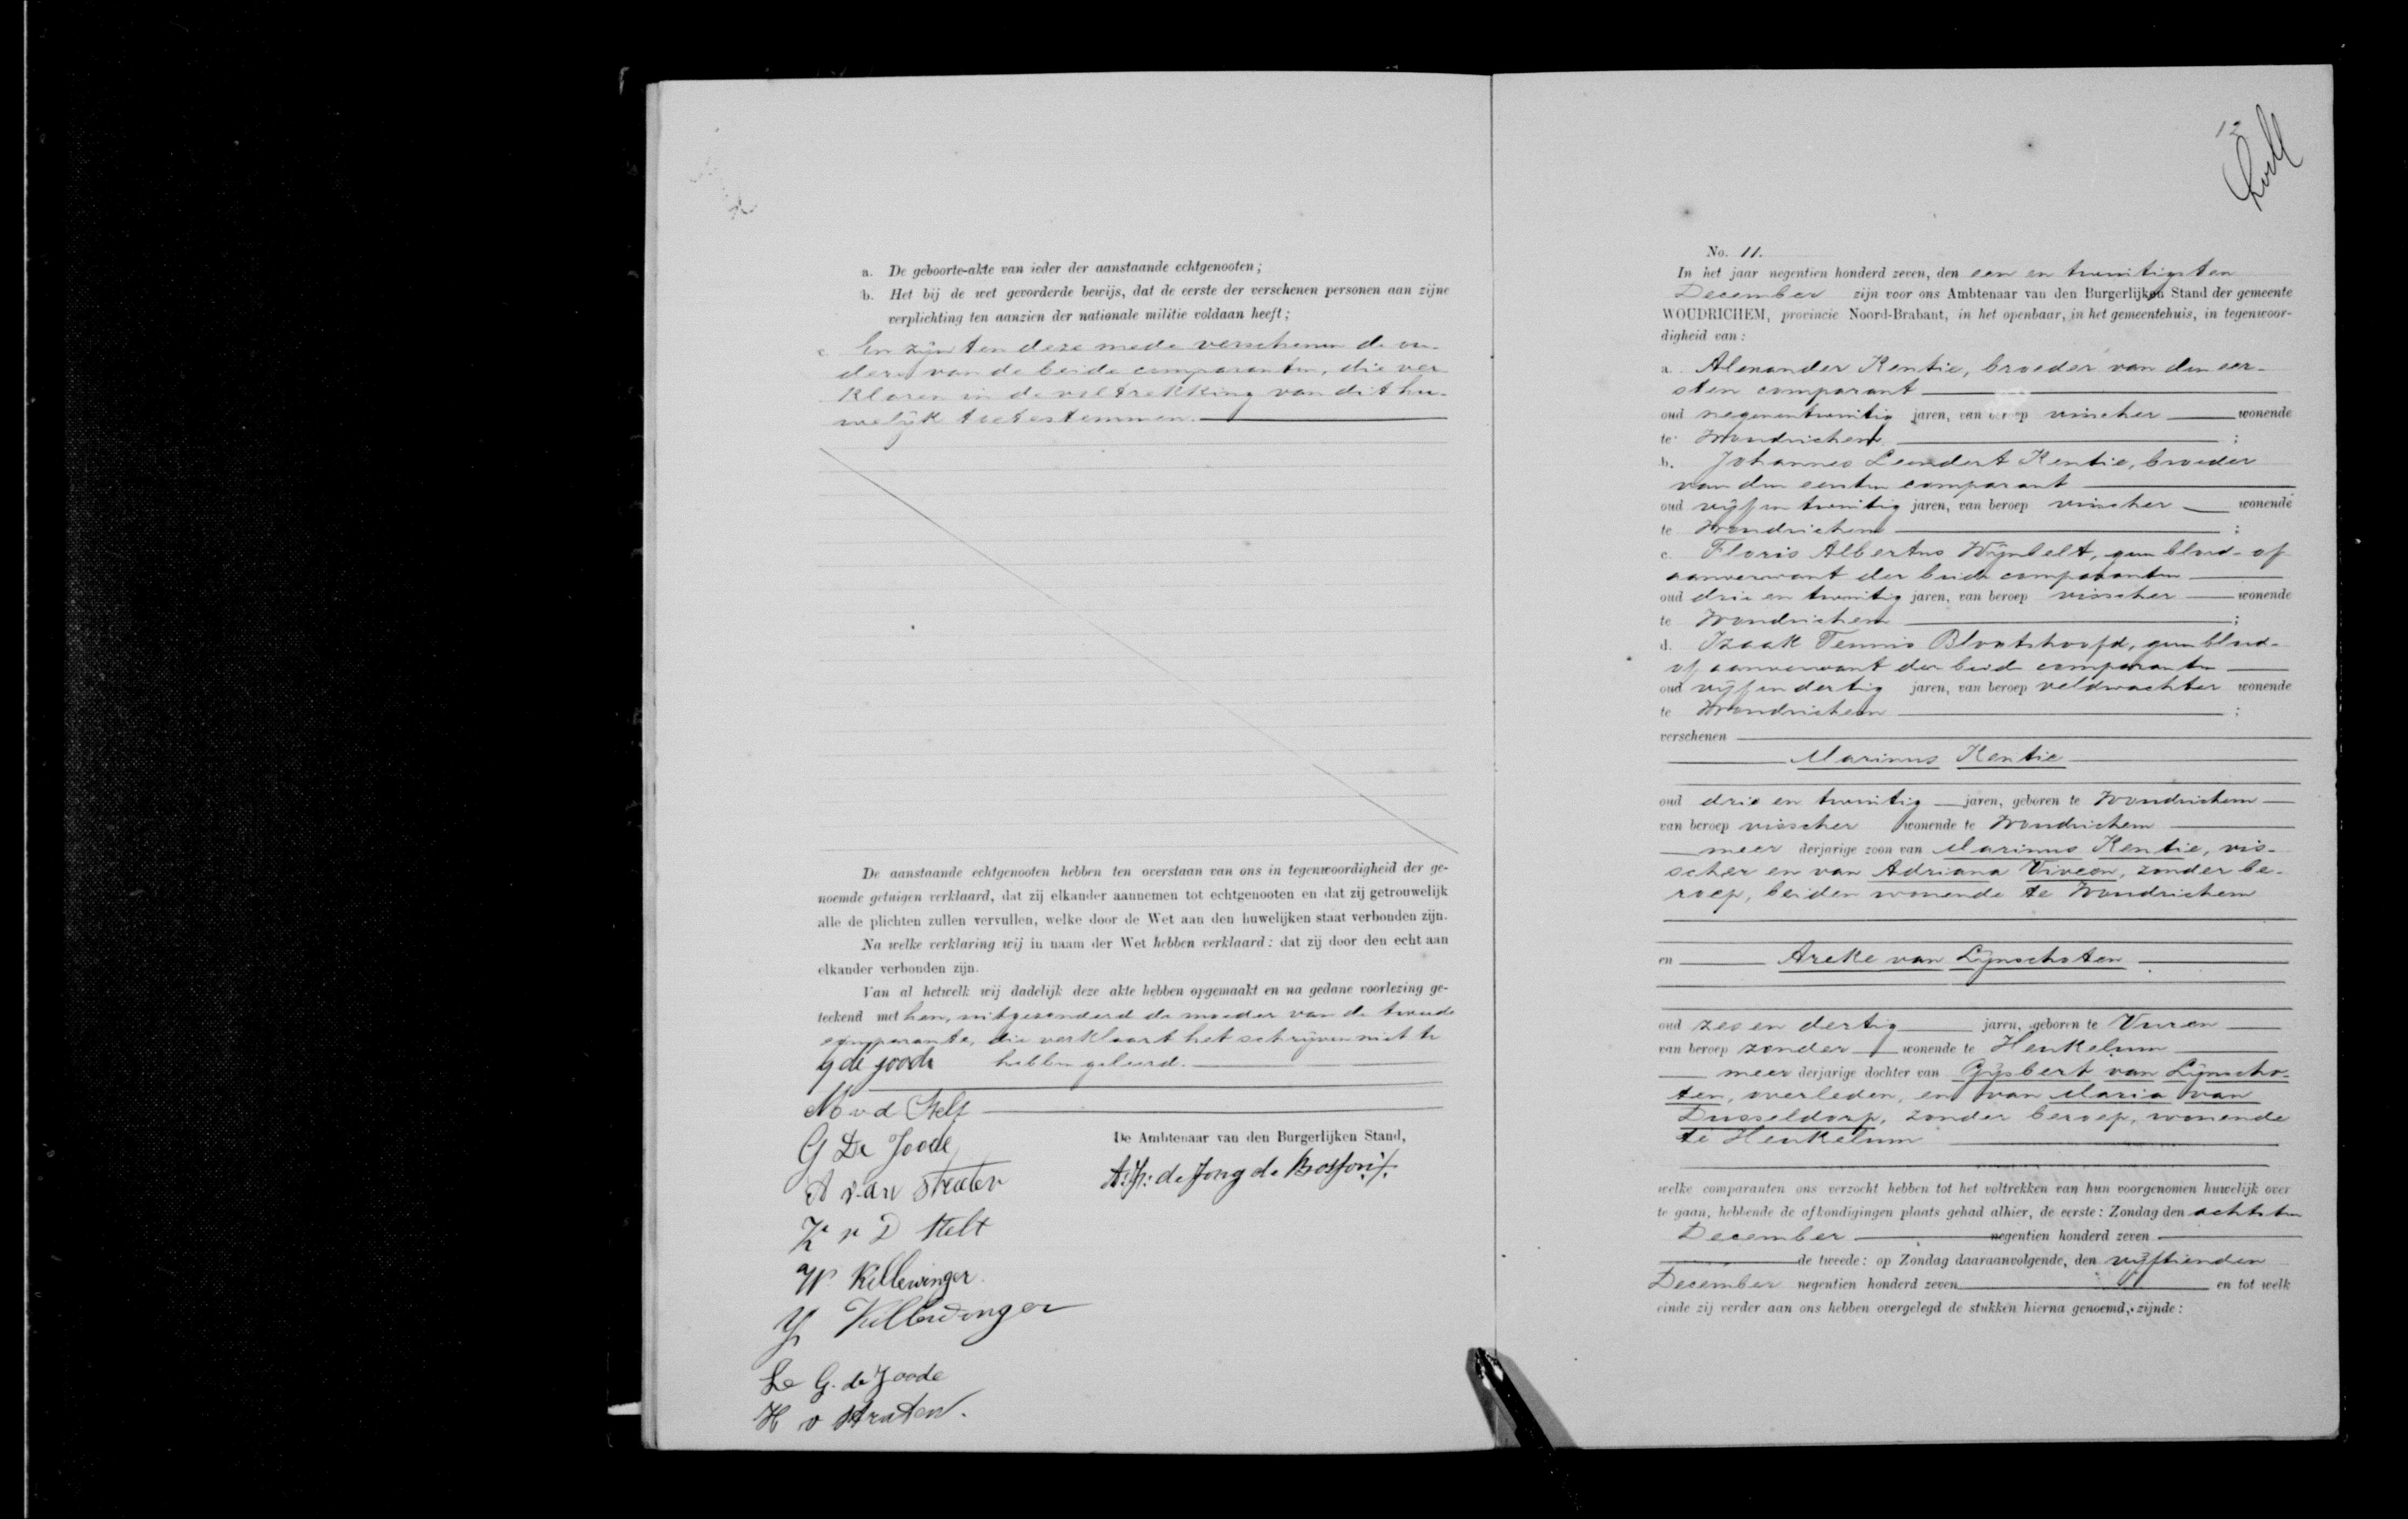 a. De geboorte-akte van ieder der aanstaande echtgenooten;
b. Het bij de wet gevorderde bewijs, dat de eerste der verschenen personen aan zijne
verplichting ten aanzien der nationale militie voldaan heeft;
c. En zijn ten deze mede verschenen de ou-
ders van de beide comparanten, die ver
klaren in de voltrekking van dit hu-
welijk toetestemmen.
De aanstaande echtgenooten hebben ten overstaan van ons in tegenwoordigheid der ge-
noemde getuigen verklaard, dat zij elkander aannemen tot echtgenooten en dat zij getrouwelijk
alle de plichten zullen vervullen, welke door de Wet aan den huwelijken staat verbonden zijn.
Na welke verklaring wij in naam der Wet hebben verklaard: dat zij door den echt aan
elkander verbonden zijn.
Van al hetwelk wij dadelijk deze akte hebben opgemaakt en na gedane voorlezing ge-
teekend met hen, uitgezonderd de moeder van de tweede
comparante, die verklaart het schrijven niet te
g de joode hebben geleerd.
M v d Stelt
G De Joode
De Ambtenaar van den Burgerlijken Stand,
A van Straten
de Jong de
K v D Stelt
W Killewinger
Y Killewinger
L G. de Joode
H v Straten.
12
No. 11.
In het jaar negentien honderd zeven, den een en twintigsten
December zijn voor ons Ambtenaar van den Burgerlijken Stand der gemeente
WOUDRICHEM, provincie Noord-Brabant, in het openbaar, in het gemeentehuis, in tegenwoor-
digheid van:
a. Alexander Kentie, broeder van den eer-
sten comparant
oud negenentwintig jaren, van beroep visscher wonende
te Woudrichem ;
b. Johannes Leendert Kentie, broeder
van den eersten comparant
oud vijf en twintig jaren, van beroep visscher wonende
te Woudrichem ;
c. Floris Albertus Wijnbelt, geen bloed- of
aanverwant der beide comparanten
oud drie en twintig jaren, van beroep visscher wonende
te Woudrichem ;
d. Izaak Teunis Blootshoofd, geen bloed-
of aanverwant der beide comparanten
oud vijf en dertig jaren, van beroep veldwachter wonende
te Woudrichem ;
verschenen
Marinus Kentie
oud drie en twintig jaren, geboren te Woudrichem
van beroep visscher wonende te Woudrichem
meer derjarige zoon van Marinus Kentie, vis-
scher en van Adriana Viveen, zonder be-
roep, beiden wonende te Woudrichem
en Areke van Lijnschoten
oud zes en dertig jaren, geboren te Vuren
van beroep zonder wonende te Heukelum
meer derjarige dochter van Gijsbert van Lijnscho-
ten, overleden, en van Maria van
Dusseldorp, zonder beroep, wonende
te Heukelum
welke comparanten ons verzocht hebben tot het voltrekken van hun voorgenomen huwelijk over
te gaan, hebbende de afkondigingen plaats gehad alhier, de eerste: Zondag den achtsten
December negentien honderd zeven
de tweede: op Zondag daaraanvolgende, den vijftienden
December negentien honderd zeven en tot welk
einde zij verder aan ons hebben overgelegd de stukken hierna genoemd, zijnde: